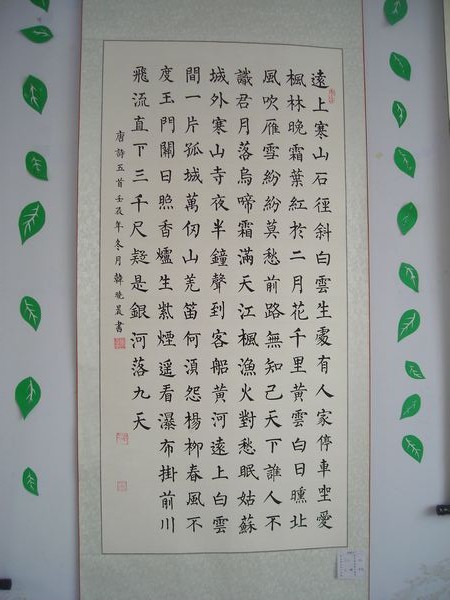 遠上寒山石徑斜白雲生處有人家停車坐愛
楓林晚霜葉紅於二月花千里黃雲白日曛北
風吹雁雪紛紛莫愁前路無知己天下誰人不
識君月落烏啼霜滿天江楓漁火對愁眠姑蘇
城外寒山寺夜半鐘聲到客船黃河遠上白雲
間一片孤城萬仞山羌笛何須怨楊柳春風不
度玉門關日照香爐生紫煙遙看瀑布掛前川
飛流直下三千尺疑是銀河落九天
唐詩五首壬年冬月韓書